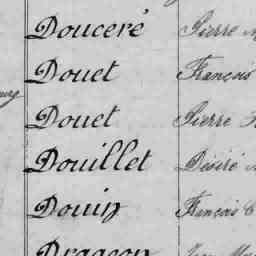 Douceré Pierre
Douet François
Douet Pierre
Douillet Désiré
Douin François
Drageon